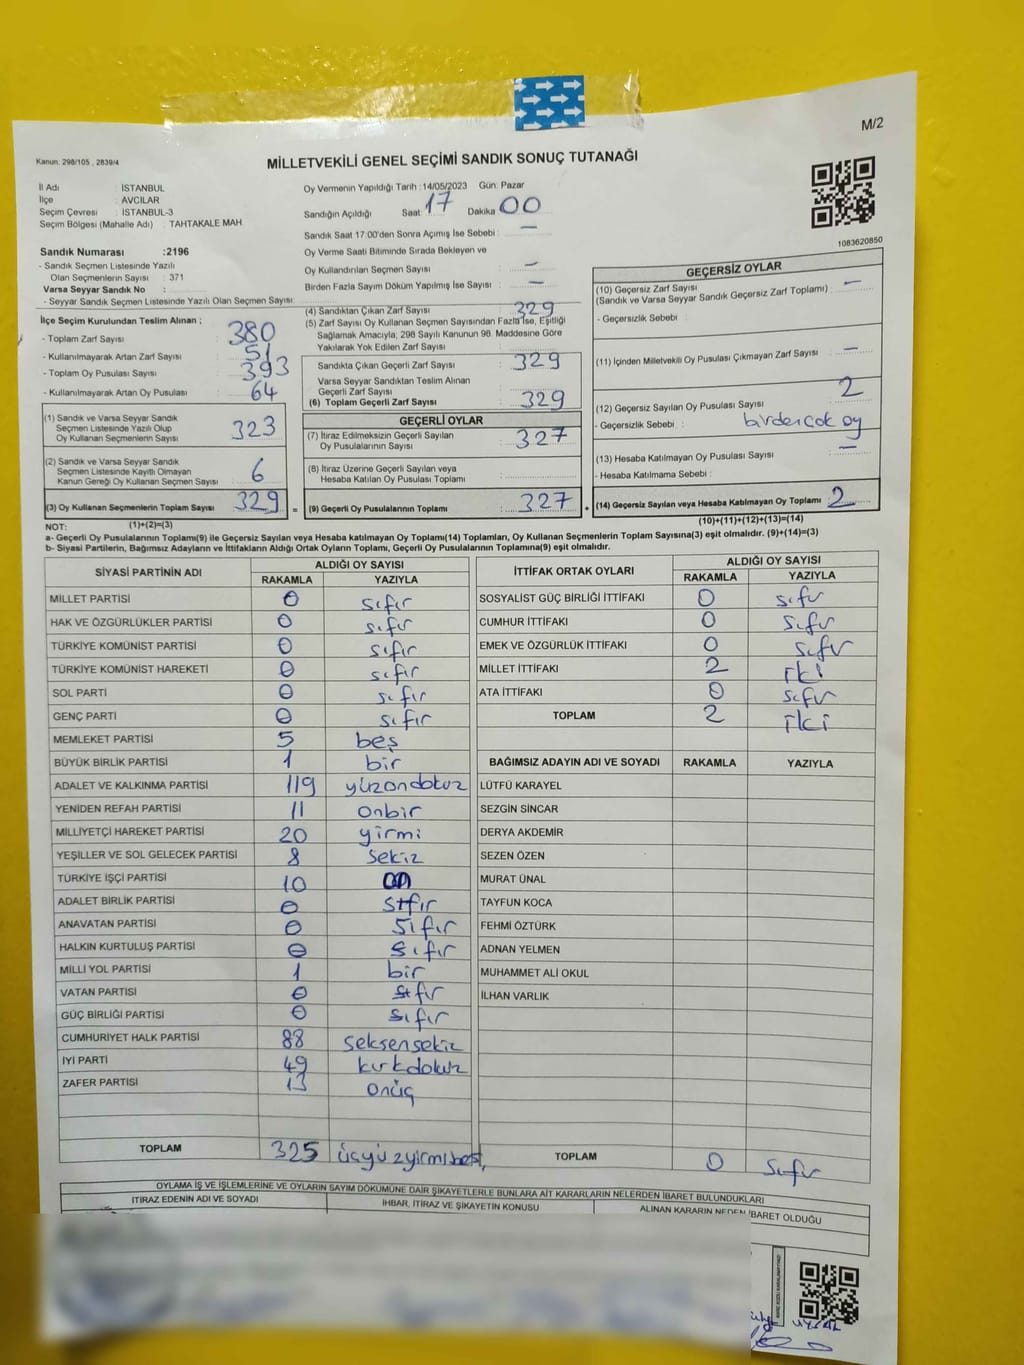 M/2
Kanun: 298/105 , 2839/4
MİLLETVEKİLİ GENEL SEÇİMİ SANDIK SONUÇ TUTANAĞI
İl Adı : İSTANBUL
İlçe : AVCILAR
Seçim Çevresi : İSTANBUL-3
Seçim Bölgesi (Mahalle Adı) : TAHTAKALE MAH
Oy Vermenin Yapıldığı Tarih : 14/05/2023 Gün: Pazar
Sandığın Açıldığı Saat 17 Dakika 00
Sandık Saat 17:00'den Sonra Açımış İse Sebebi : —
Oy Verme Saati Bitiminde Sırada Bekleyen ve
Oy Kullandırılan Seçmen Sayısı : —
Birden Fazla Sayım Döküm Yapılmış İse Sayısı : —
1083620850
Sandık Numarası :2196
- Sandık Seçmen Listesinde Yazılı
Olan Seçmenlerin Sayısı : 371
Varsa Seyyar Sandık No :
- Seyyar Sandık Seçmen Listesinde Yazılı Olan Seçmen Sayısı:
İlçe Seçim Kurulundan Teslim Alınan ;
- Toplam Zarf Sayısı : 380
- Kullanılmayarak Artan Zarf Sayısı : 51
- Toplam Oy Pusulası Sayısı : 393
- Kullanılmayarak Artan Oy Pusulası : 64
(1) Sandık ve Varsa Seyyar Sandık
Seçmen Listesinde Yazılı Olup
Oy Kullanan Seçmenlerin Sayısı 323
(2) Sandık ve Varsa Seyyar Sandık
Seçmen Listesinde Kayıtlı Olmayan
Kanun Gereği Oy Kullanan Seçmen Sayısı : 6
(3) Oy Kullanan Seçmenlerin Toplam Sayısı 329
(4) Sandıktan Çıkan Zarf Sayısı : 329
(5) Zarf Sayısı Oy Kullanan Seçmen Sayısından Fazla İse, Eşitliği
Sağlamak Amacıyla, 298 Sayılı Kanunun 98. Maddesine Göre
Yakılarak Yok Edilen Zarf Sayısı :
Sandıkta Çıkan Geçerli Zarf Sayısı : 329
Varsa Seyyar Sandıktan Teslim Alınan
Geçerli Zarf Sayısı
(6) Toplam Geçerli Zarf Sayısı : 329
GEÇERLİ OYLAR
(7) İtiraz Edilmeksizin Geçerli Sayılan
Oy Pusulalarının Sayısı : 327
(8) İtiraz Üzerine Geçerli Sayılan veya
Hesaba Katılan Oy Pusulası Toplamı :
= (9) Geçerli Oy Pusulalarının Toplamı : 327
GEÇERSİZ OYLAR
(10) Geçersiz Zarf Sayısı : —
(Sandık ve Varsa Seyyar Sandık Geçersiz Zarf Toplamı)
- Geçersizlik Sebebi :
(11) İçinden Milletvekili Oy Pusulası Çıkmayan Zarf Sayısı : —
(12) Geçersiz Sayılan Oy Pusulası Sayısı 2
- Geçersizlik Sebebi : birdençok oy
(13) Hesaba Katılmayan Oy Pusulası Sayısı : —
- Hesaba Katılmama Sebebi :
+ (14) Geçersiz Sayılan veya Hesaba Katılmayan Oy Toplamı 2
NOT: (1)+(2)=(3)
(10)+(11)+(12)+(13)=(14)
a- Geçerli Oy Pusulalarının Toplamı(9) ile Geçersiz Sayılan veya Hesaba katılmayan Oy Toplamı(14) Toplamları, Oy Kullanan Seçmenlerin Toplam Sayısına(3) eşit olmalıdır. (9)+(14)=(3)
b- Siyasi Partilerin, Bağımsız Adayların ve İttifakların Aldığı Ortak Oyların Toplamı, Geçerli Oy Pusulalarının Toplamına(9) eşit olmalıdır.
SİYASİ PARTİNİN ADI ALDIĞI OY SAYISI
RAKAMLA YAZIYLA
MİLLET PARTİSİ 0 sıfır
HAK VE ÖZGÜRLÜKLER PARTİSİ 0 sıfır
TÜRKİYE KOMÜNİST PARTİSİ 0 sıfır
TÜRKİYE KOMÜNİST HAREKETİ 0 sıfır
SOL PARTİ 0 sıfır
GENÇ PARTİ 0 sıfır
MEMLEKET PARTİSİ 5 beş
BÜYÜK BİRLİK PARTİSİ 1 bir
ADALET VE KALKINMA PARTİSİ 119 yüzondokuz
YENİDEN REFAH PARTİSİ 11 onbir
MİLLİYETÇİ HAREKET PARTİSİ 20 yirmi
YEŞİLLER VE SOL GELECEK PARTİSİ 8 sekiz
TÜRKİYE İŞÇİ PARTİSİ 10 on
ADALET BİRLİK PARTİSİ 0 sıfır
ANAVATAN PARTİSİ 0 sıfır
HALKIN KURTULUŞ PARTİSİ 0 sıfır
MİLLİ YOL PARTİSİ 1 bir
VATAN PARTİSİ 0 sıfır
GÜÇ BİRLİĞİ PARTİSİ 0 sıfır
CUMHURİYET HALK PARTİSİ 88 seksensekiz
İYİ PARTİ 49 kırkdokuz
ZAFER PARTİSİ 13 onüç
TOPLAM 325 üçyüzyirmibeş
İTTİFAK ORTAK OYLARI ALDIĞI OY SAYISI
RAKAMLA YAZIYLA
SOSYALİST GÜÇ BİRLİĞİ İTTİFAKI 0 sıfır
CUMHUR İTTİFAKI 0 sıfır
EMEK VE ÖZGÜRLÜK İTTİFAKI 0 sıfır
MİLLET İTTİFAKI 2 iki
ATA İTTİFAKI 0 sıfır
TOPLAM 2 iki
BAĞIMSIZ ADAYIN ADI VE SOYADI RAKAMLA YAZIYLA
LÜTFÜ KARAYEL
SEZGİN SİNCAR
DERYA AKDEMİR
SEZEN ÖZEN
MURAT ÜNAL
TAYFUN KOCA
FEHMİ ÖZTÜRK
ADNAN YELMEN
MUHAMMET ALİ OKUL
İLHAN VARLIK
TOPLAM 0 sıfır
OYLAMA İŞ VE İŞLEMLERİNE VE OYLARIN SAYIM DÖKÜMÜNE DAİR ŞİKAYETLERLE BUNLARA AİT KARARLARIN NELERDEN İBARET BULUNDUKLARI
İTİRAZ EDENİN ADI VE SOYADI İHBAR, İTİRAZ VE ŞİKAYETİN KONUSU ALINAN KARARIN NEDEN İBARET OLDUĞU